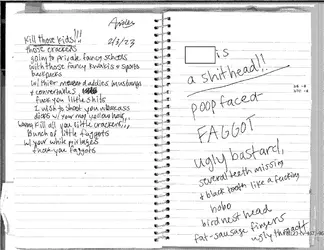 Kill those kids!!!
2/3/23
those crackers
going to private fancy schools
with those fancy khakis & sports
backpacks
w/ thier daddies mustangs
& convertables
fuck you little shits
I wish to shoot you weakass
dicks w/ your mop yellow hair,
wanna kill all you little crackers!!!
Bunch of little faggots
w/ your white privlages
fuck you faggots
is
a shithead!!
poop faced
FAGGOT
ugly bastard,
several teeth missing
& black tooth like a fucking
hobo
birdnest head
fat-sausage fingers
ugly